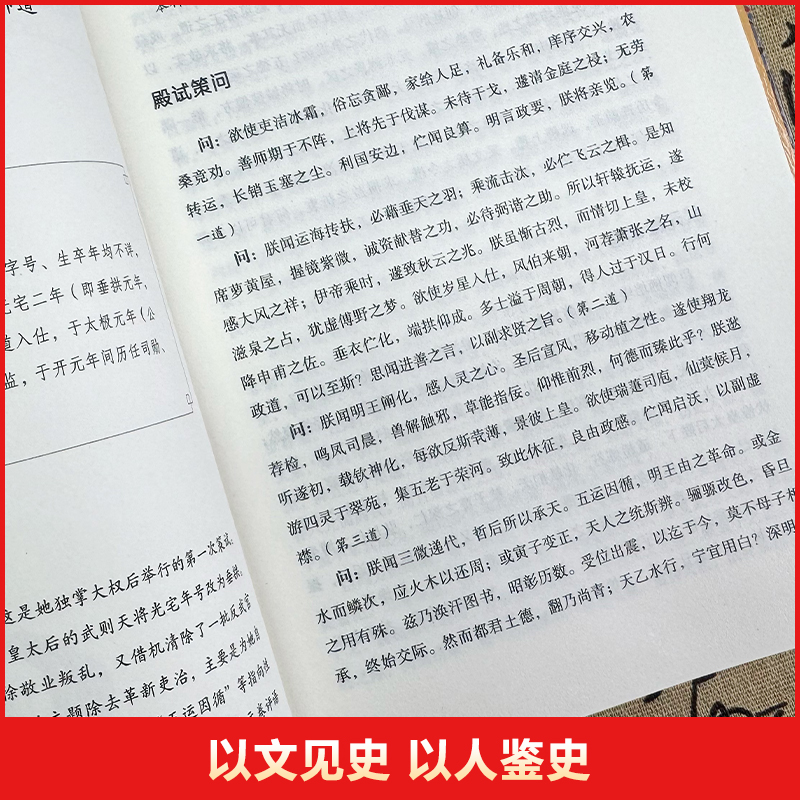 殿试策问
问：欲使吏洁冰霜，俗忘贪鄙，家给人足，礼备乐和，庠序交兴，农
桑竞劝。善师期于不阵，上将先于伐谋。未待干戈，遽清金庭之祲；无劳
转运，长销玉塞之尘。利国安边，伫闻良算。明言政要，朕将亲览。（第
一道）
问：朕闻运海抟扶，必藉垂天之羽；乘流击汰，必伫飞云之楫。是知
席萝黄屋，握镜紫微，诚资献替之功，必待弼谐之助。所以轩辕抚运，遂
感大风之祥；伊帝乘时，遽致秋云之兆。朕虽惭古烈，而情切上皇，未校
滋泉之占，犹虚傅野之梦。欲使岁星入仕，风伯来朝，河荐萧张之名，山
降申甫之佐。垂衣仁化，端拱仰成。多士溢于周朝，得人过于汉日。行何
政道，可以至斯？思闻进善之言，以副求贤之旨。（第二道）
问：朕闻明王阐化，感人灵之心。圣后宣风，移动植之性。遂使翔龙
荐检，鸣凤司晨，兽解触邪，草能指佞。仰惟前烈，何德而臻此乎？朕逖
听遂初，载钦神化，每欲反斯茕薄，景彼上皇。欲使瑞萐司庖，仙蓂候月，
游四灵于翠苑，集五老于荣河。致此休征，良由政感。伫闻启沃，以副虚
襟。（第三道）
问：朕闻三微递代，哲后所以承天。五运因循，明王由之革命。或金
水而鳞次，应火木以还周；或寅子变正，天人之统斯辨。骊騵改色，昏旦
之用有殊。兹乃涣汗图书，昭彰历数。受位出震，以迄于今，莫不母子相
承，终始交际。然而都君土德，翻乃尚青；天乙水行，宁宜用白？深明
字号、生卒年均不详，
光宅二年（即垂拱元年，
道入仕，于太极元年（公
监，于开元年间历任司勋、
这是她独掌大权后举行的第一次策试，
皇太后的武则天将光宅年号改为垂拱，
徐敬业叛乱，又借机清除了一批反武官
主题除去革新吏治，主要是为她自
五运因循”等指向续
以文见史 以人鉴史